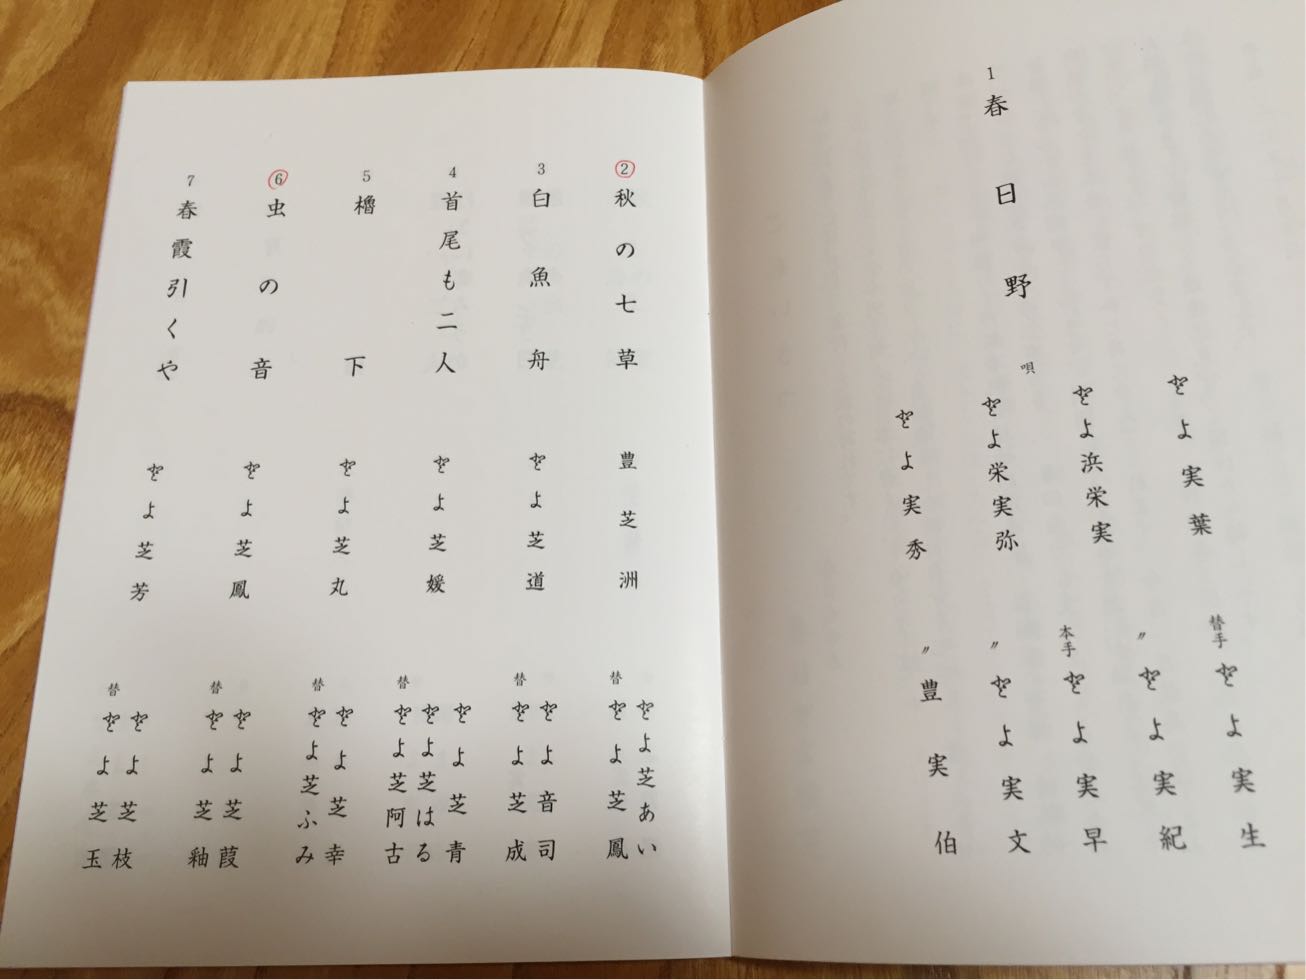 1 春日野
唄
とよ実葉
とよ浜栄実
とよ栄実弥
とよ実秀
替手 とよ実生
〃 とよ実紀
本手 とよ実早
〃 とよ実文
〃 豊実伯
2 秋の七草
豊芝洲
とよ芝あい
替 とよ芝鳳
3 白魚舟
とよ芝道
とよ音司
替 とよ芝成
4 首尾も二人
とよ芝媛
とよ芝青
とよ芝はる
替 とよ芝阿古
5 櫓下
とよ芝丸
とよ芝幸
替 とよ芝ふみ
6 虫の音
とよ芝鳳
とよ芝葭
替 とよ芝釉
7 春霞引くや
とよ芝芳
とよ芝枝
替 とよ芝玉